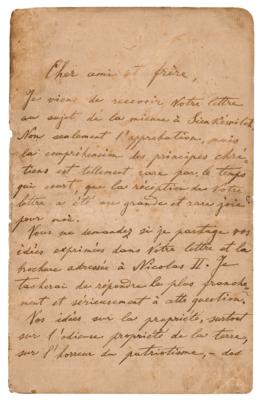 Cher ami et frère,
Je viens de recevoir votre lettre
au sujet de la mienne à Sienkéwitch.
Non seulement l'approbation, mais
la compréhension des principes chré-
tiens est tellement rare par le temps
qui court, que la réception de votre
lettre a été une grande et rare joie
pour moi.
Vous me demandez si je partage vos
idées exprimées dans votre lettre et la
brochure adressée à Nicolas II. Je
tacherai de répondre le plus franche-
ment et sérieusement à cette question.
Vos idées sur la propriété, surtout
sur l'odieuse propriété de la terre,
sur l'horreur du patriotisme, - des